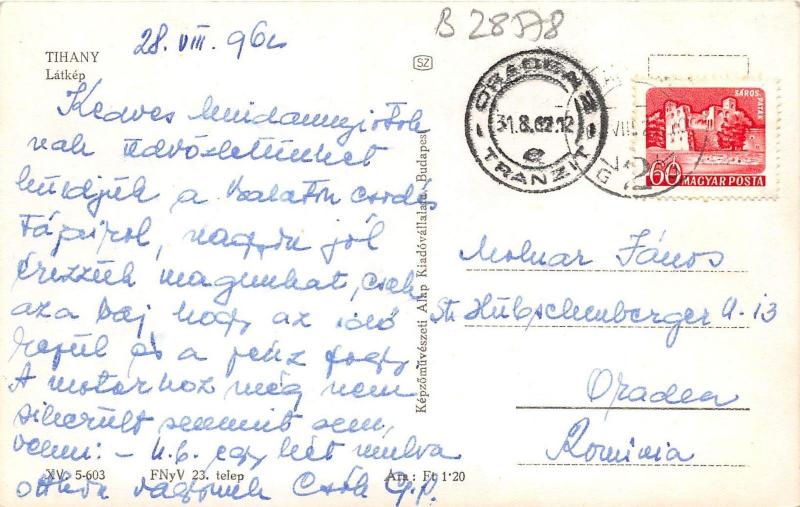 B 28578
28. VIII. 962
TIHANY
Látkép
SZ
Kedves mindannyiotok
nak üdvözletünket
küldjük a Balaton csodás
tájairol, nagyon jól
érezzük magunkat, csak
az a baj hogy az idő
repül és a pénz fogy
A motorhoz még nem
sikerült semmit sem,
venni: - k.b. egy hét mulva
otthon vagyunk Csók G.P.
XV. 5-603 FNyV 23. telep Ára: Ft 1·20
Képzőművészeti Alap Kiadóvállalata, Budapest
ORADEA 2
31.8.62.12
e
TRANZIT
VIII.
2
SÁROSPATAK
60 MAGYAR POSTA
Molnar János
Str Hübschenberger U-13
Oradea
Rominia